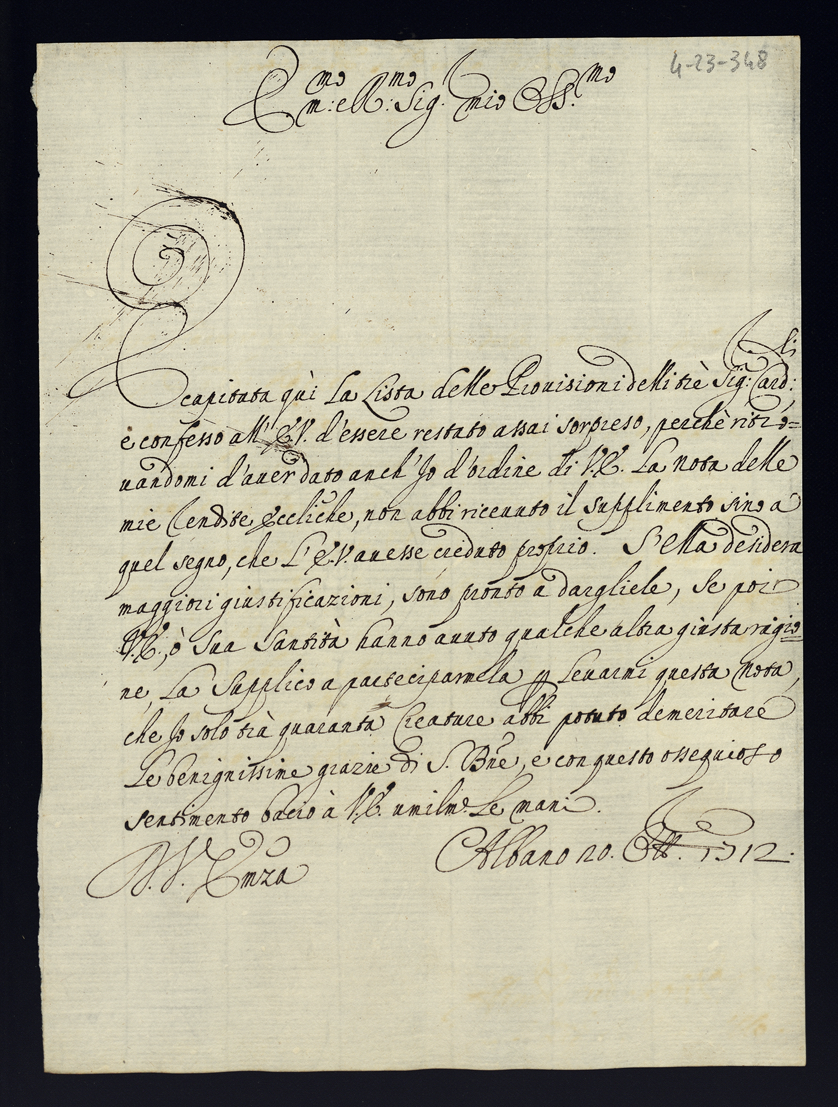 4-23-348
Em:mo e R:mo Sig. mio Oss.mo
È capitata quì la Lista delle Prouisioni delli trè Sig:ri Card:li
e confesso all' E.V. d'essere restato assai sorpreso, perchè ritro=
uandomi d'auer dato anch' Jo d'ordine di V.E. La nota delle
mie Rendite Eccliche, non abbi riceuuto il supplimento sino a
quel segno, che L'E.V. auesse creduto proprio. S'ella desidera
maggiori giustificazioni, sono pronto a dargliele, se poi
V.E., ò Sua Santità hanno auuto qualche altra giusta ragio=
ne, La Supplico a parteciparmela p leuarmi questa nota,
che Jo solo trà quaranta Creature abbi potuto demeritare
Le benignissime grazie di S. Bne, e con questo ossequioso
sentimento bacio à V.E. umilme. Le mani.
D. V. Emza
Albano 20. Ott. 1712.